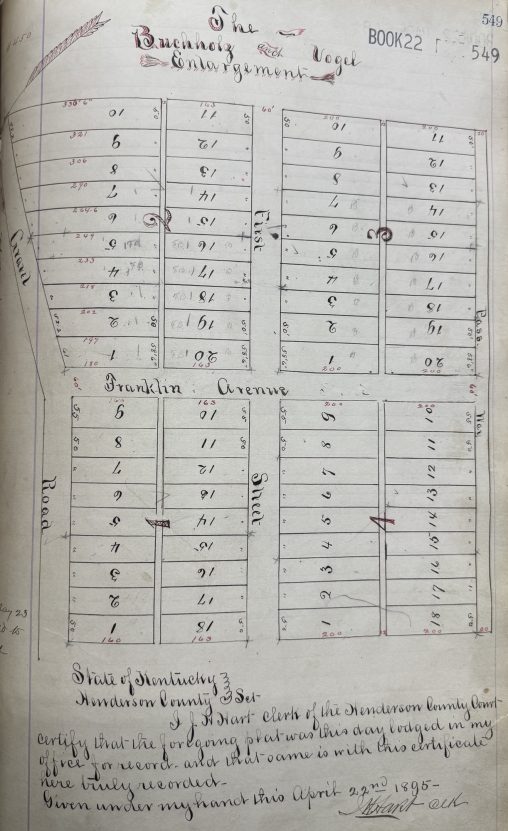 549
BOOK 22
549
The
Buchholz and Vogel
Enlargement
1450
338'6" 163 60' 200 200
10 50 11 50' 50' 10 11
321
9 12 9 12
306
8 13 8 13
290
7 14 7 14
6 15 6 15
249
5 16 5 16
233
4 17 4 17
218
3 18 3 18
202
2 50' 19 50' 50' 2 19 50'
1 20 1 20
180 163 200 200
2 3
Grand
First
Pass Way
60' Franklin Avenue 60'
9 10 9 10
8 11 8 11
7 12 7 12
6 13 6 13
5 14 5 14
4 15 4 15
3 16 3 16
2 17 2 17
1 18 1 18
160 163 200 200
1 4
Road
Street
State of Kentucky
Henderson County Sct-
I J R Hart clerk of the Henderson County Court
certify that the foregoing plat was this day lodged in my
office for record. and that same is with this certificate
here truly recorded-
Given under my hand this April 22nd 1895-
J R Hart clk